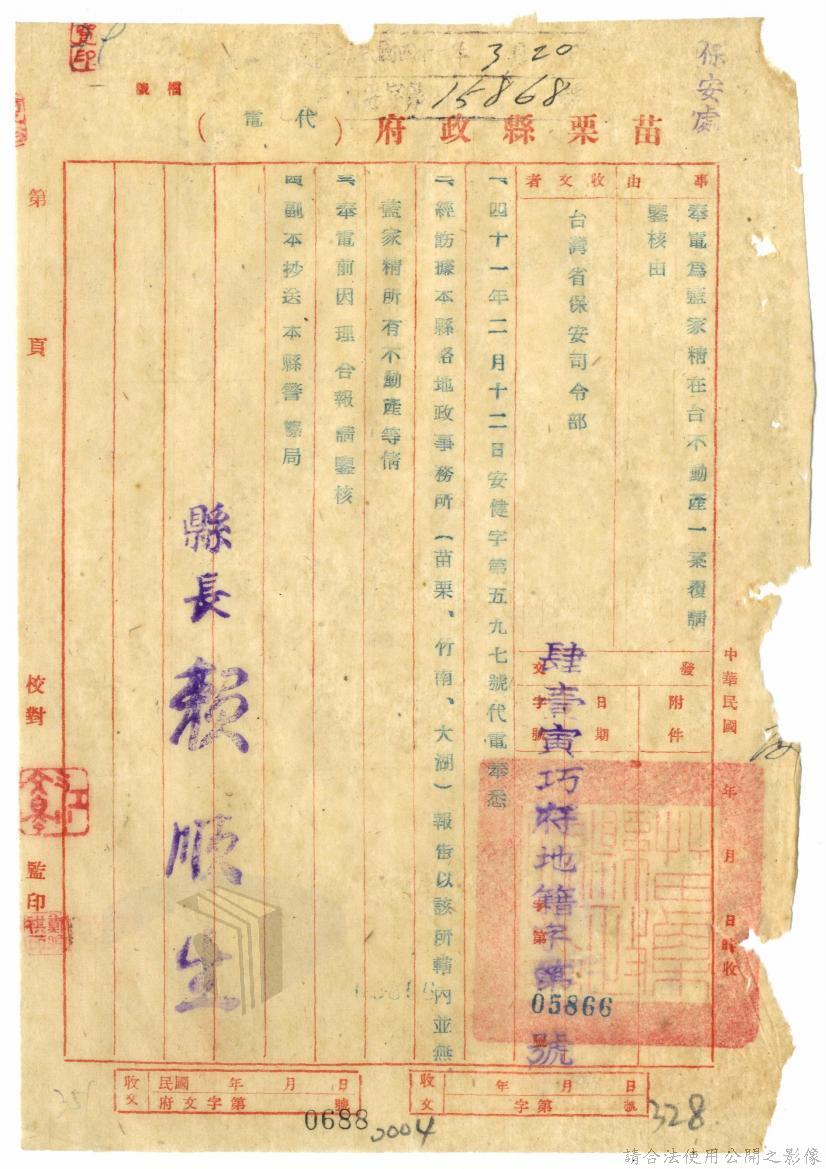 保安處
3 20
15868
檔號
苗栗縣政府(代電)
事由
奉電為藍家精在台不動產一案覆請
鑒核由
收文者
台灣省保安司令部
中華民國 年 月 日 時收
發文
附件
日期
字號
肆壹寅巧府地籍字第 號
字第
05866
一、四十一年二月十二日安健字第五九七號代電奉悉
二、經飭據本縣各地政事務所(苗栗、竹南、大湖)報告以該所轄內並無
藍家精所有不動產等情
三、奉電前因理合報請鑒核
四、副本抄送本縣警察局
縣長 賴順生
第 頁
校對
監印
收文 民國 年 月 日
府文字第 號
收文 年 月 日
字第 號
0688
0004
328
請合法使用公開之影像